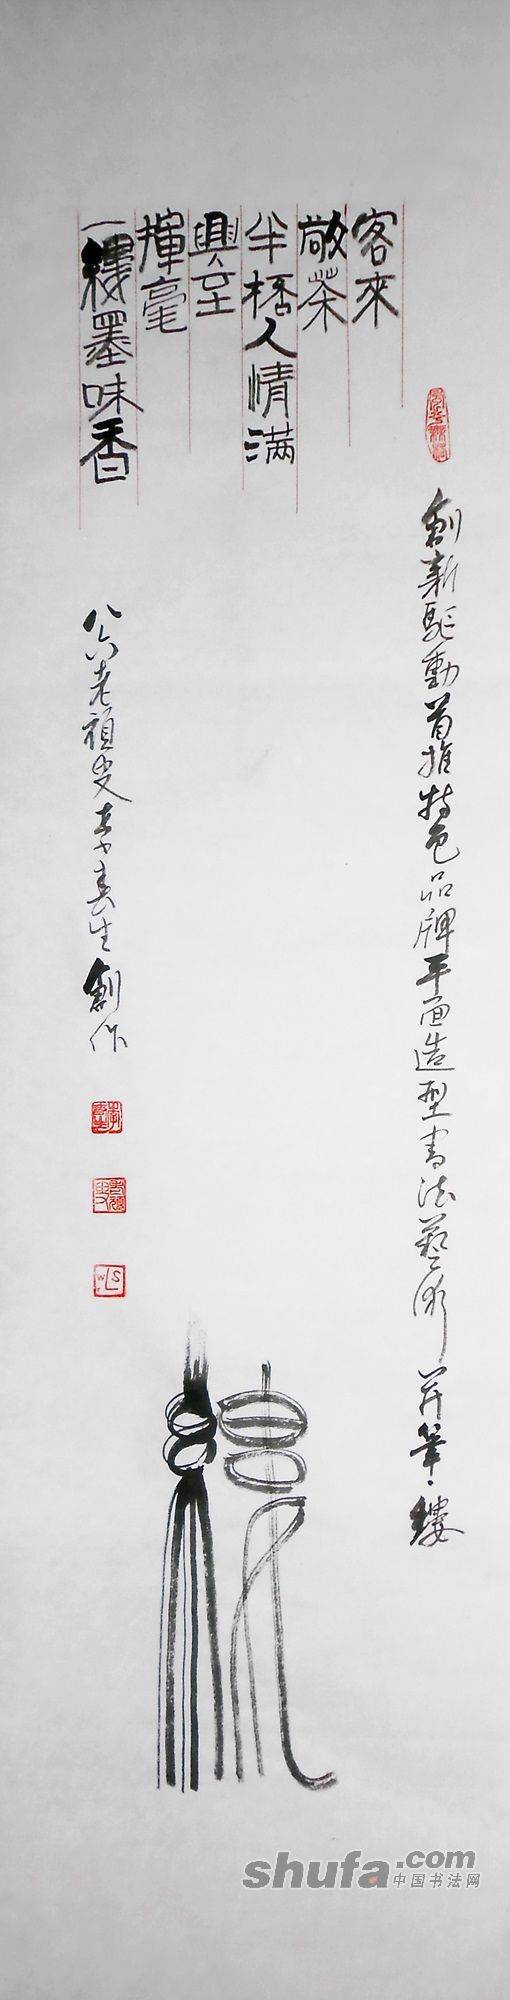 創新駆動首推特色品牌平面造型書法藝術 并筆·縷
客來
敞茶
半榙人情满
興至
揮毫
一縷墨味香
八六老頑叟李春生創作
縷
shufa.com
中国书法网